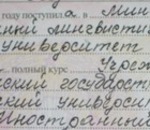 году поступила в Мин
нный лингвистич
университет
полный курс
ский государств
ский универси
Иностранный